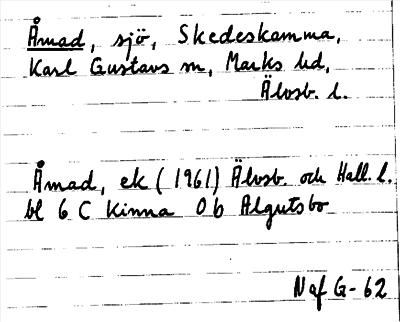 Åmad, sjö, Skedeskamma,
Karl Gustavs sn, Marks hd,
Älvsb. l.
Åmad, ek (1961) Älvsb. och Hall. l.
bl 6 C Kinna 0 b Algutsbo
Naf G-62